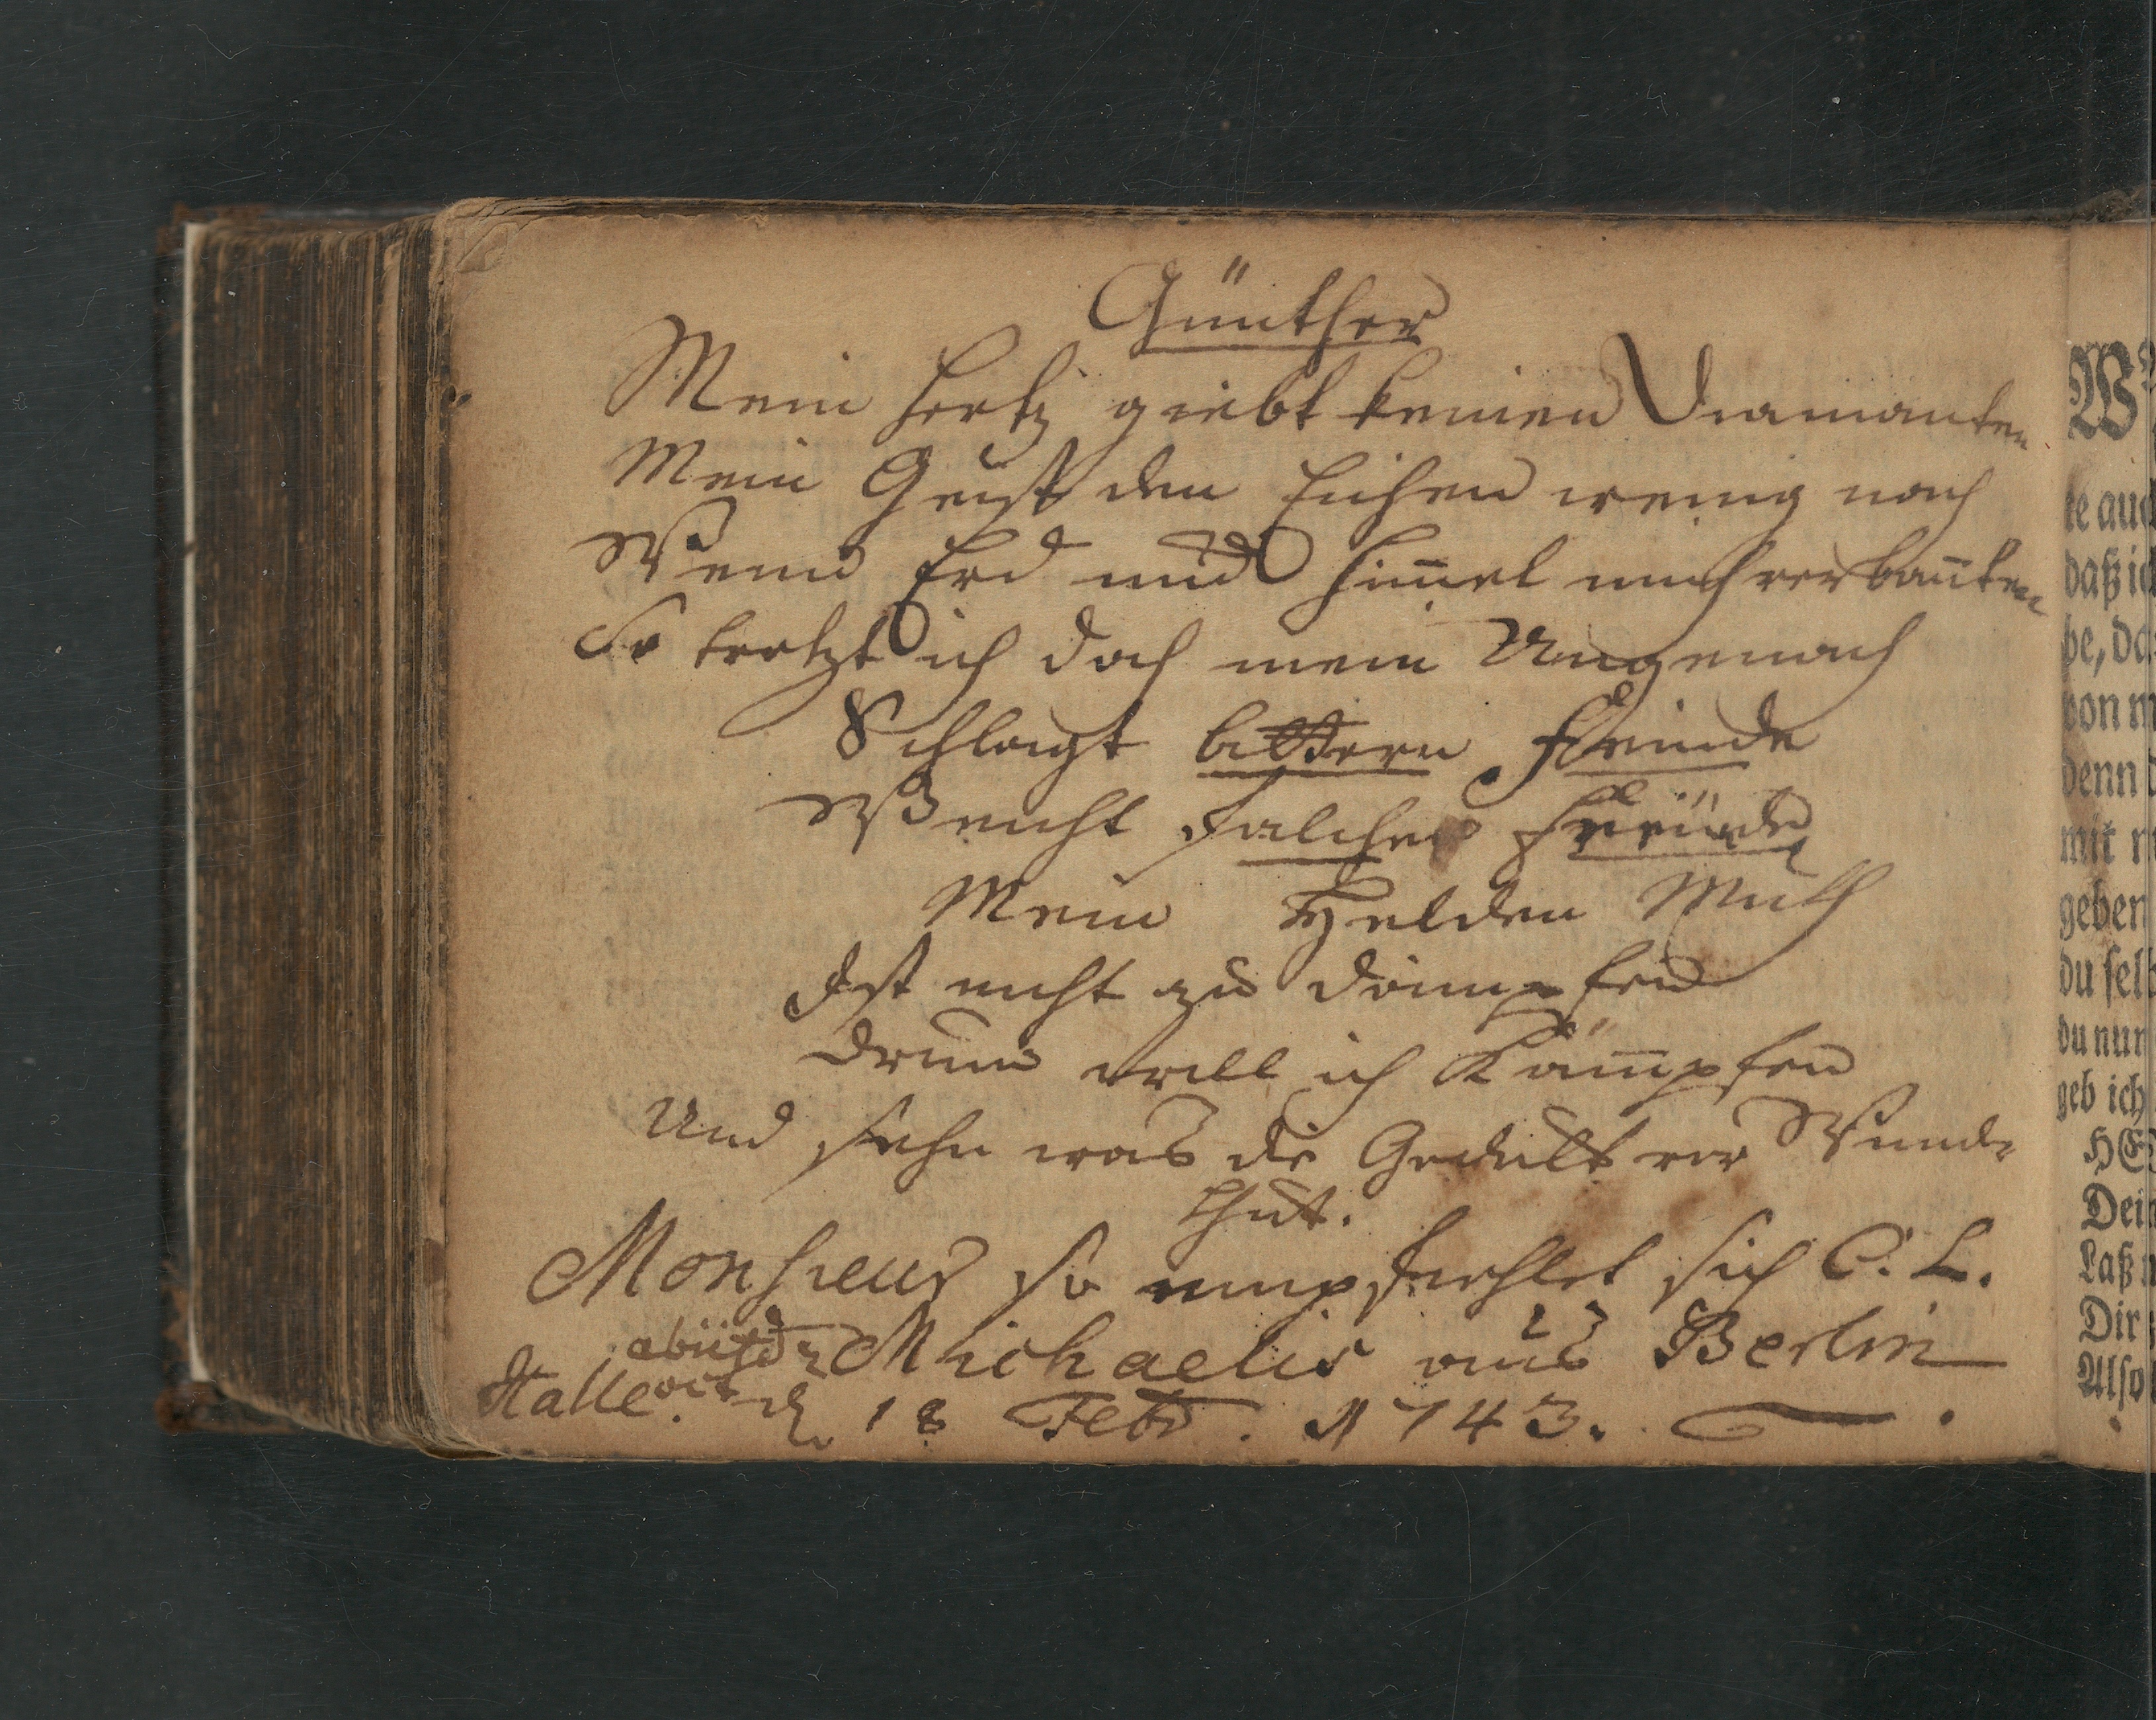 Günther
Mein Hertz giebt keinen Diamanten
Mein Geist den Eichen wenig nach
Wenn Erd und Him̄el mich verban̄ten
So trotzt ich doch mein Ungemach
Schlagt bittern Feinde
Weicht falsche Freünde
Mein Helden Muth
Ist nicht zu dämpfen
Drum will ich Kämpfen
Und sehn was die Gedult vor Wunde
thut.
Monsieur so empfiehlet sich C. L.
Michaelis aus Berlin
Halle d. 18 Febr. 1743.
W
te auc
daß ic
be, da
von m
denn d
mit m
geben
du selb
du nun
geb ich
HE
Dein
Laß
Dir
Also